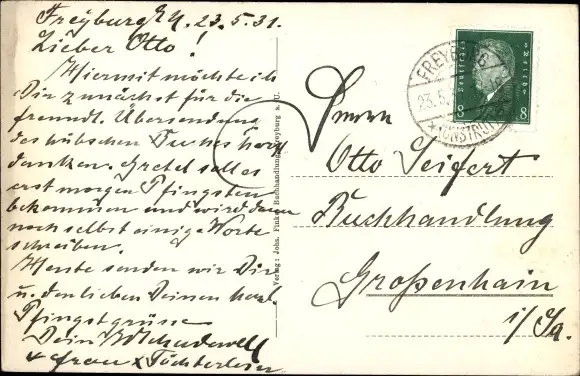 Freyburg a/U. 23.5.31.
Lieber Otto!
Hiermit möchte ich
Dir zunächst für die
freundl. Übersendung
des hübschen Buches herzl.
danken. Gretel soll es
erst morgen Pfingsten
bekommen und wird dann
noch selbst einige Worte
schreiben.
Heute senden wir Dir
u. den lieben Deinen herzl.
Pfingstgrüsse
Dein
& Frau & Töchterlein
Verlag: Johs. Finke Buchhandlung, Freyburg a. U.
Deutsches Reich
8 8
FREYBURG
23.5.
* (UNSTRUT)
Herrn
Otto Seifert
Buchhandlung
Großenhain
i/Sa.